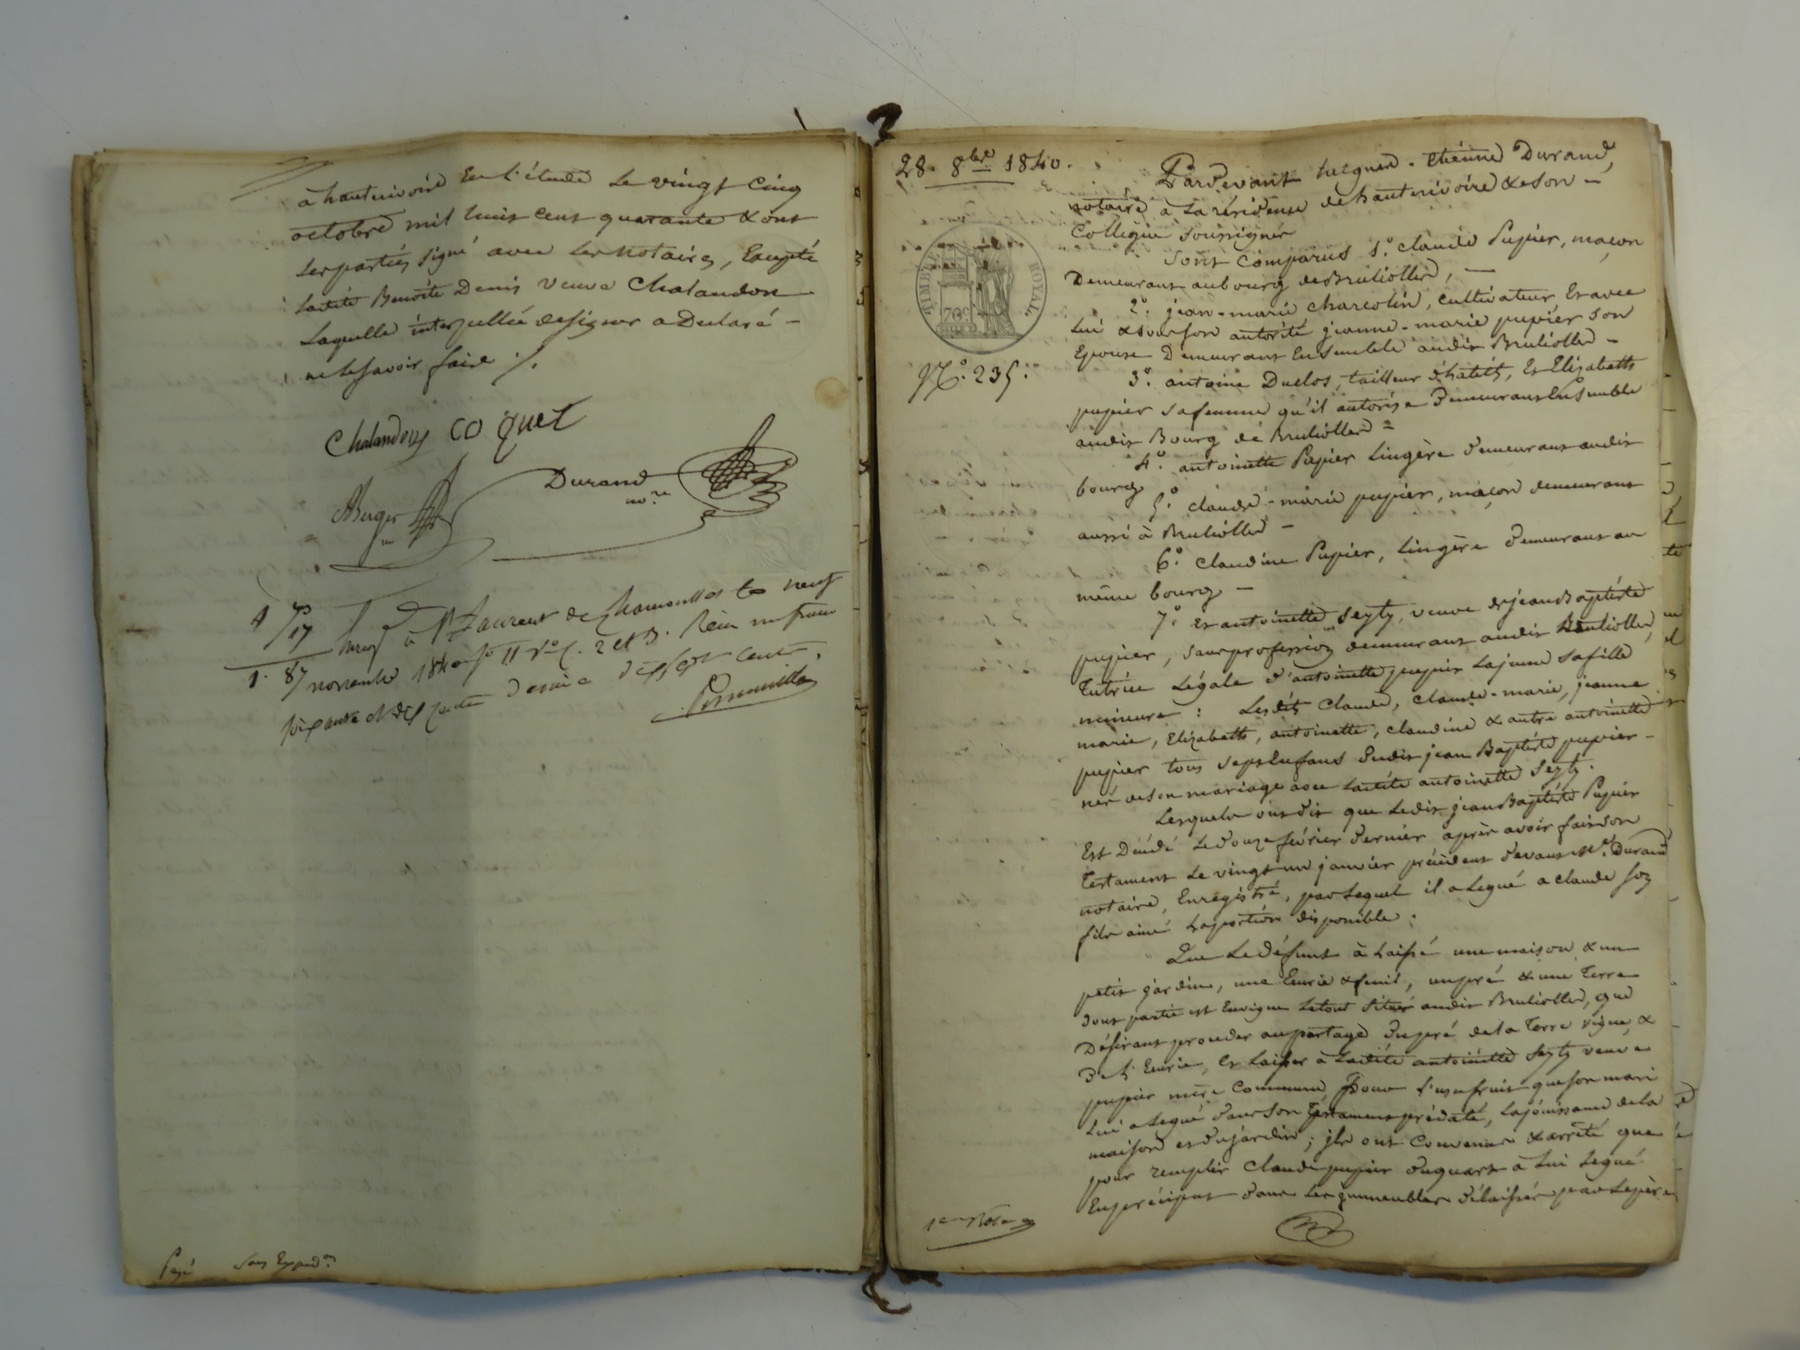 à hauterivoire En l'étude le vingt cinq
octobre mil huit cent quarante & ont
les parties signé avec les Notaires, Excepté
ladite Benoite Denis veuve Chalandon
laquelle interpellée de signer a Déclaré –
ne le savoir faire ./.
Chalandon coquet
Berger
Durand
no.re
1 70
/17
1. 87
à St Laurent de Chamousset le neuf
novembre 1840 fo 11 Vo C. 2 et 3. Reçu un franc
soixante et dix centimes Decime dix sept centimes.
Payé sans Expéd.on
28. 8bre 1840.
TIMBRE ROYAL
70c
No. 235.
Pardevant Jacques-Etienne Durand,
notaire à la résidence de hauterivoire & son –
Collègue soussignés
Sont Comparus 1.o claude Pupier, maçon
Demeurant au bourg de Brullioles, –
2.o jean-marie charcotin, cultivateur Et avec
lui & sous son autorité jeanne-marie pupier son
Epouse Demeurant Ensemble audit Brullioles –
3.o antoine Duclos, tailleur d'habits, Et Elizabeth
pupier sa femme qu'il autorise Demeurant Ensemble
audit Bourg de Brullioles =
4.o antoinette Pupier Lingère demeurant audit
bourg
5.o claude-marie pupier, maçon demeurant
aussi à Brullioles –
6.o claudine Pupier, Lingère demeurant au
même bourg –
7.o Et antoinette Seyty, veuve de jean Baptiste
pupier, sans profession demeurant audit Brullioles,
Tutrice Légale d'antoinette pupier la jeune sa fille
mineure : Lesdits Claude, Claude-marie, jeanne
marie, Elizabeth, antoinette, claudine & autre antoinette
pupier tous sept Enfans dudit jean Baptiste pupier –
nés de son mariage avec ladite antoinette Seyty.
Lesquels ont dit que Ledit jean Baptiste Pupier
Est Décédé Le douze février dernier après avoir fait son
Testament Le vingt un janvier précédent devant Me. Durand
notaire, Enregistré, par Lequel il a Légué a claude son
fils ainé la portion disponible :
Que Le défunt à Laissé une maison & un
petit jardin, une Ecurie & fenil, un pré & une Terre
dont partie est En vigne Le tout situé audit Brullioles, que
Désirant procéder au partage du pré de la Terre vigne, &
de l'Ecurie, Et Laisser à Ladite antoinette Seyty veuve
pupier mère Commune Pour l'usufruit que son mari
Lui a Légué dans son Testament prédaté, la jouissance de la
maison et du jardin ; jls ont Convenu & arrêté que
pour remplir Claude pupier du quart à Lui Légué
En préciput dans Les jmmeubles délaissés par Le père
1er Rôle